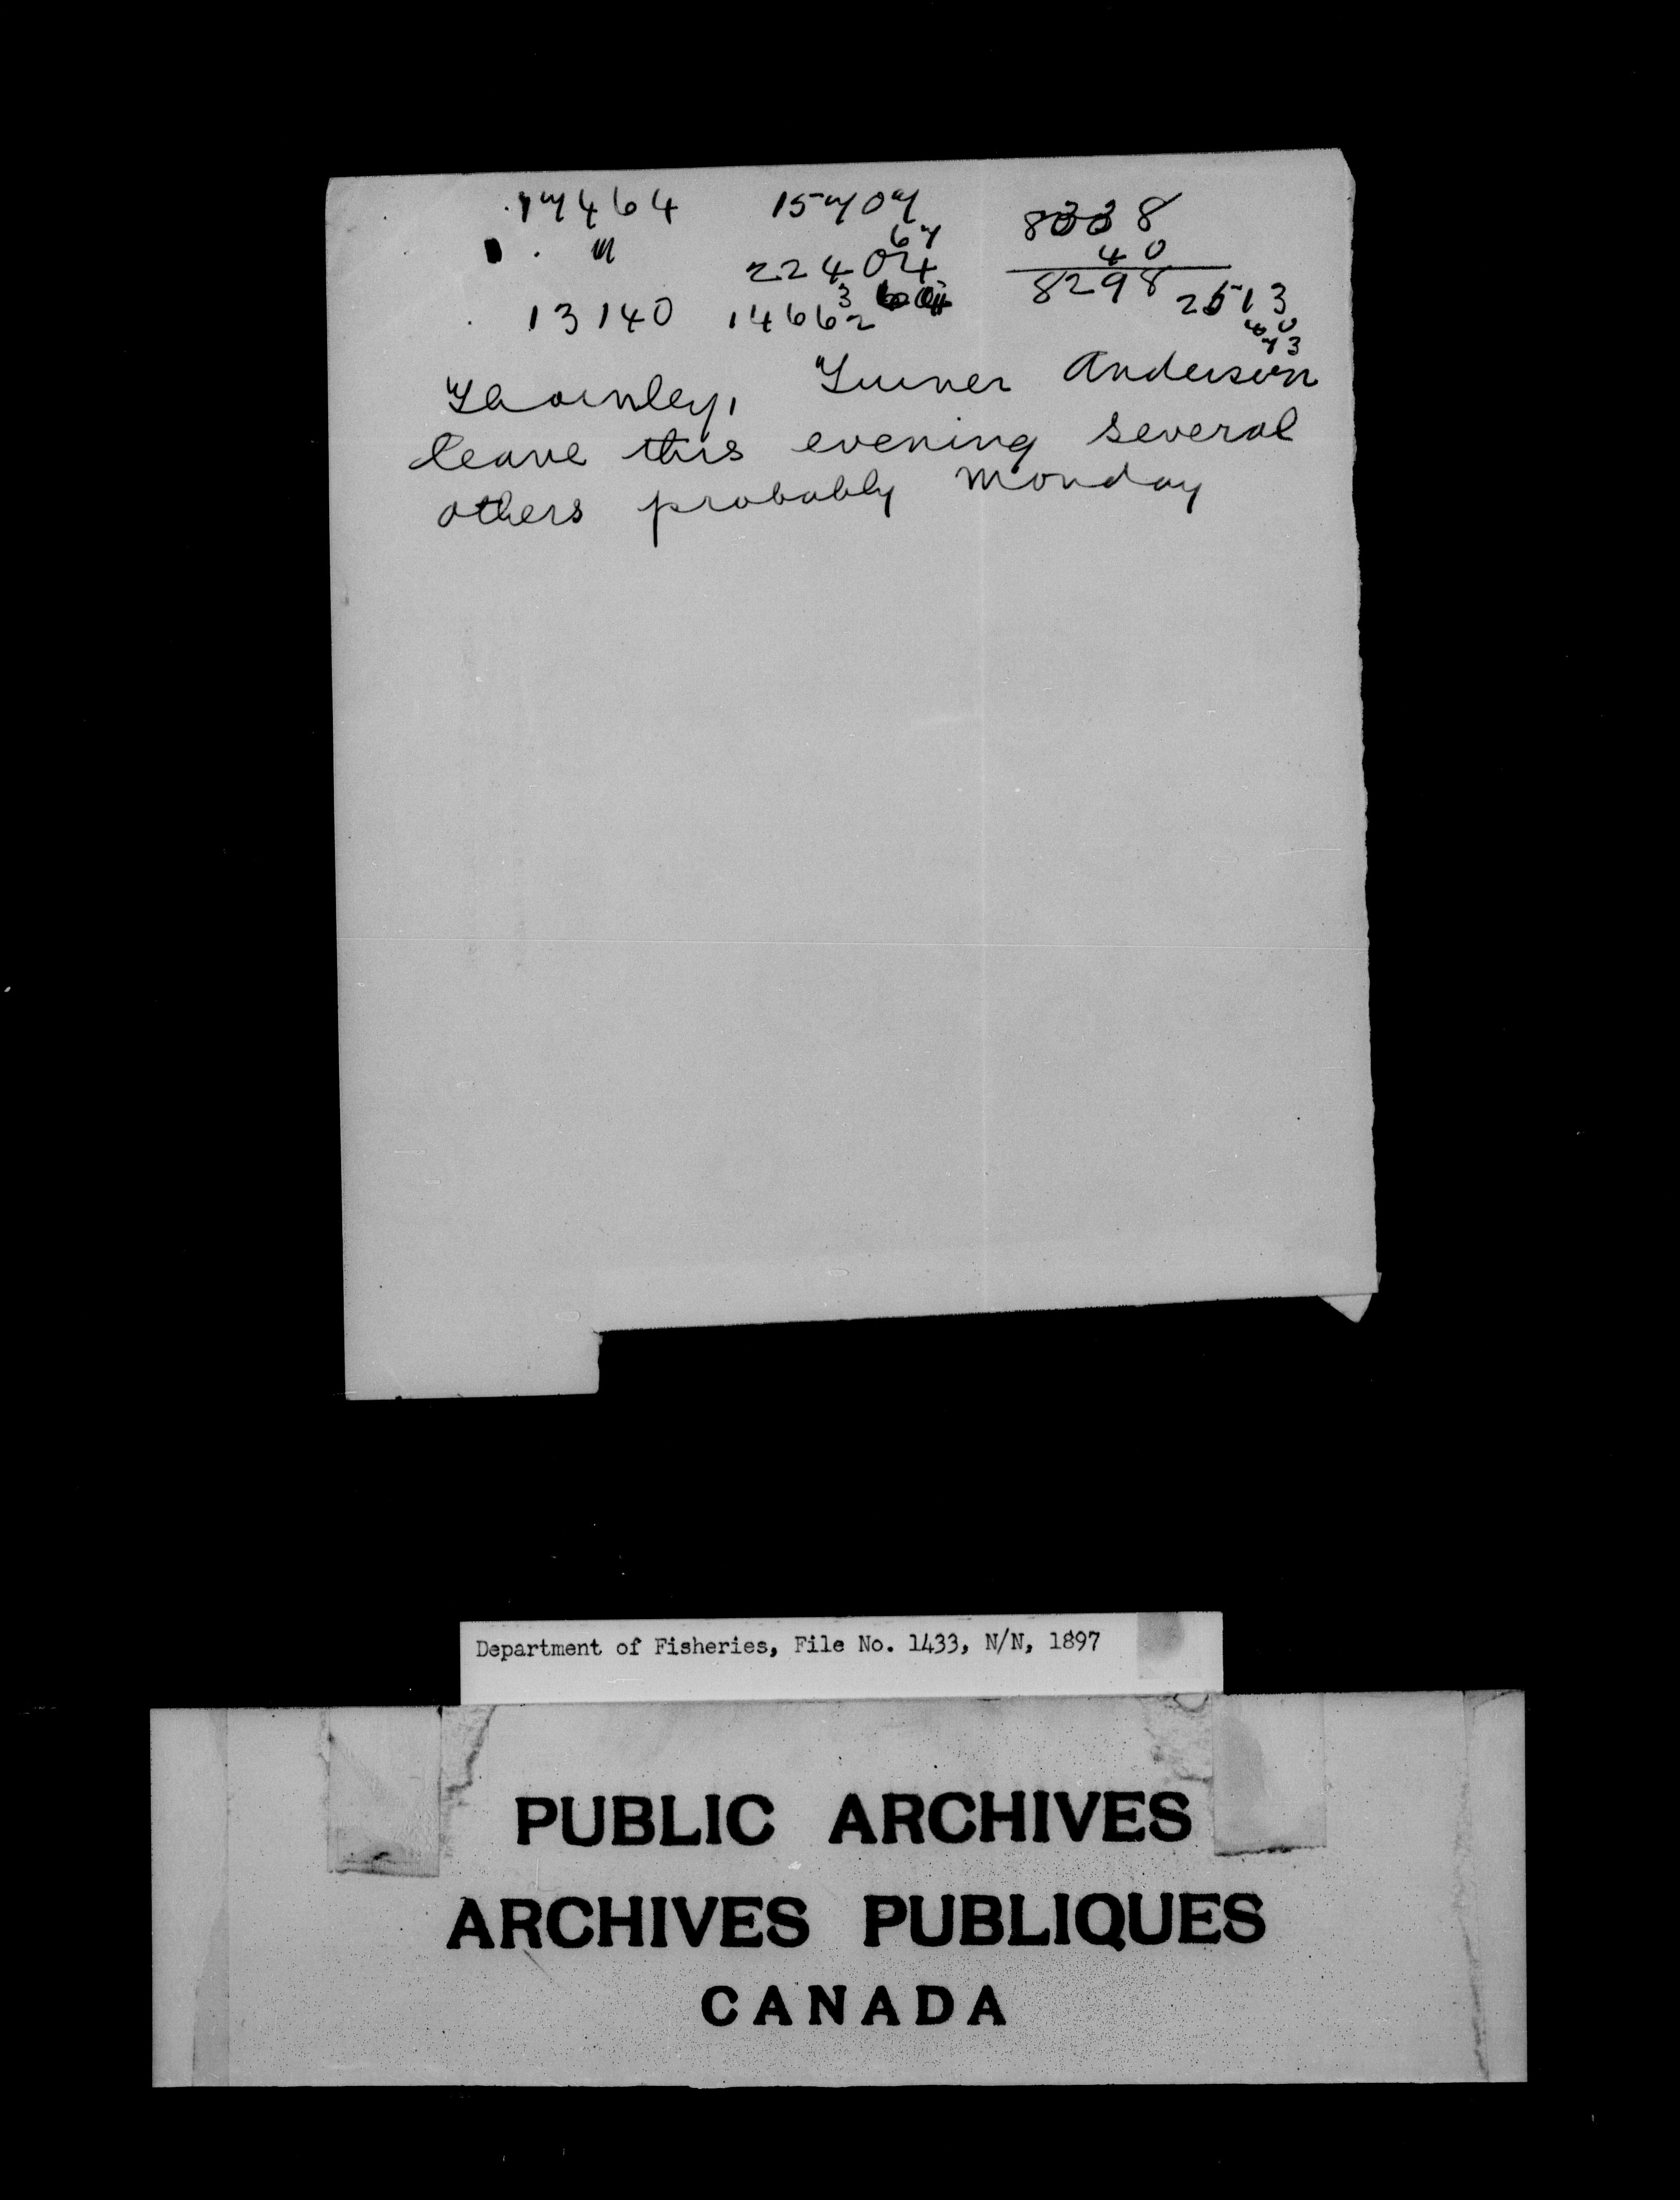 17464 15707 8338
" 67 40
22404 8298
13140 14662 3 2513
40
73
Thornley, Turner Anderson
leave this evening several
others probably Monday
Department of Fisheries, File No. 1433, N/N, 1897
PUBLIC ARCHIVES
ARCHIVES PUBLIQUES
CANADA